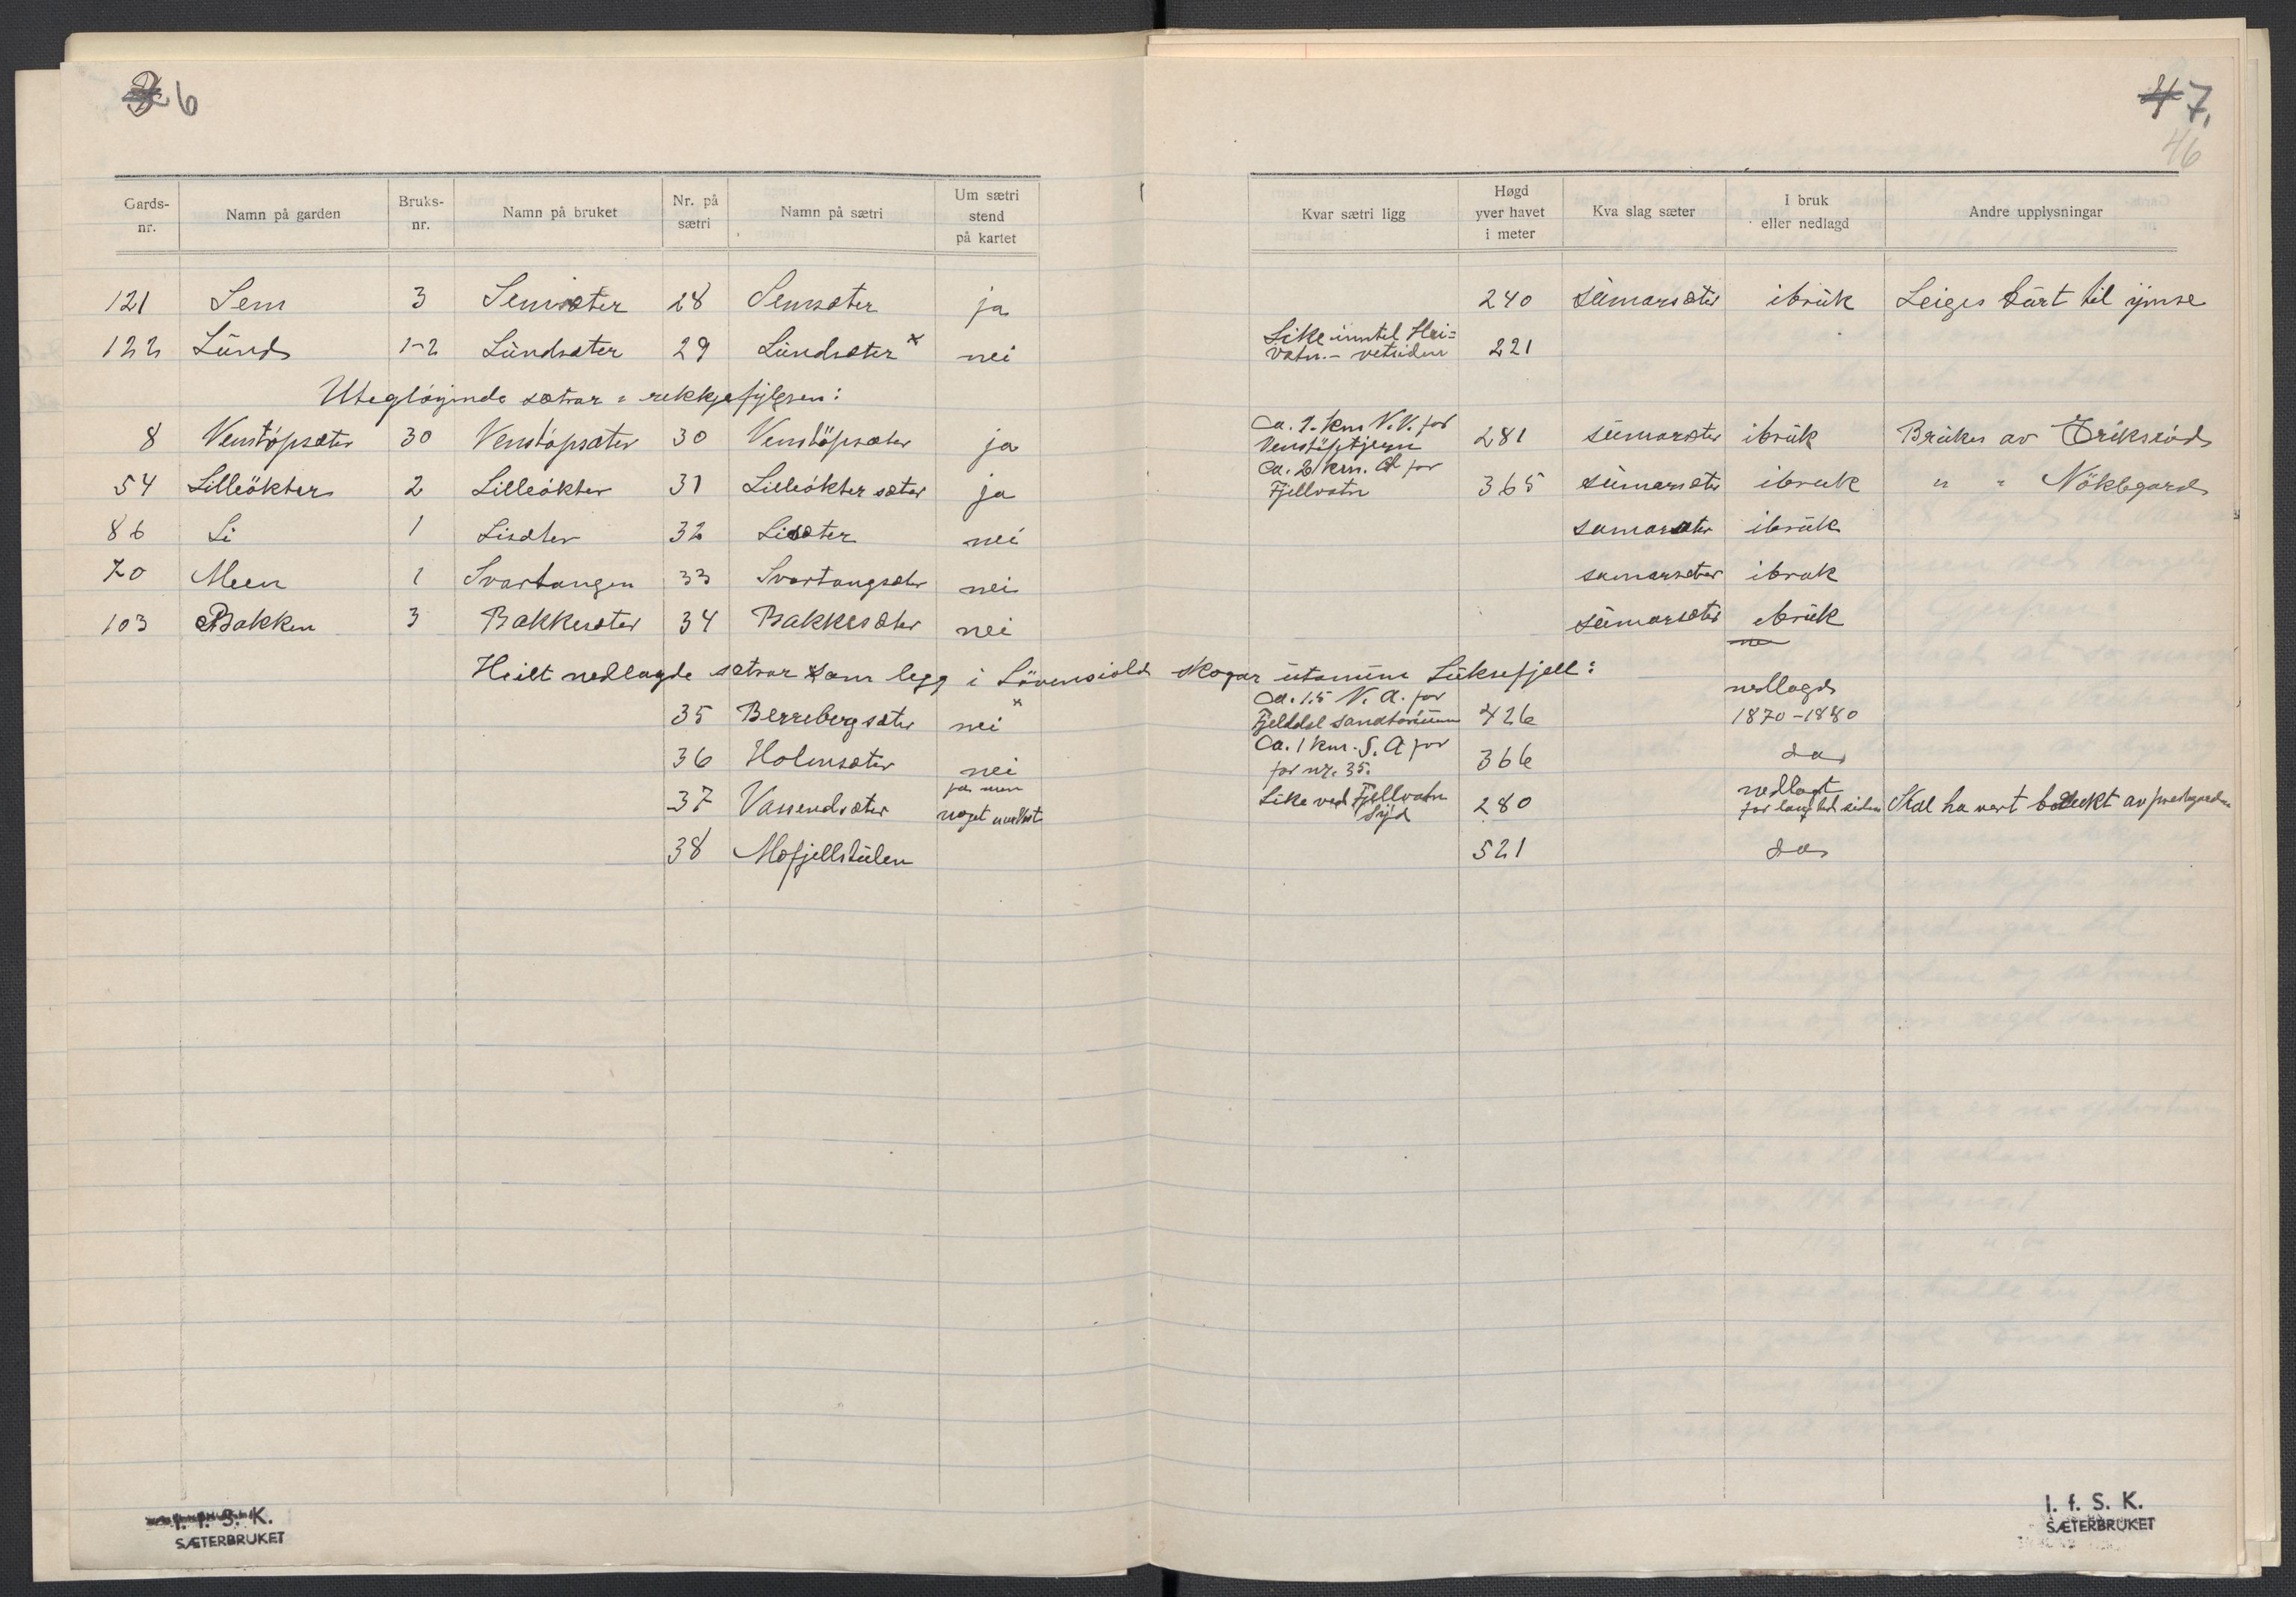 6
7.
46
Gards-nr. Namn på garden Bruks-nr. Namn på bruket Nr. på sætri Namn på sætri Um sætri stend på kartet Kvar sætri ligg Høgd yver havet i meter Kva slag sæter I bruk eller nedlagd Andre upplysningar
121 Sem 3 Semsæter 28 Semsæter ja 240 sumarsæter ibruk Leiges burt til ymse
122 Lund 1-2 Lundsæter 29 Lundsæter x nei Like inntil Hei=vatn. - vetsiden 221
Utegløymde sætrar i rekkjefylgjen:
8 Venstöpsæter 30 Venstöpsæter 30 Venstöpsæter ja Ca. 1. km N.V. for Venstöptjern 281 sumarsæter ibruk Brukes av Eriksröd
54 Lilleökter 2 Lilleökter 31 Lilleökter sæter ja Ca. 2 km. for Fjellvatn 365 sumarsæter ibruk " " Nöklegard
86 Li 1 Lisæter 32 Lisæter nei sumarsæter ibruk
70 Meen 1 Svartangen 33 Svartangsæter nei sumarsæter ibruk
103 Bakken 3 Bakkesæter 34 Bakkesæter nei sumarsæter ibruk
Heilt nedlagde sætrar som legg i Lövensiold skogar utanum Luksefjell:
35 Berrebergsæter nei x Ca. 1.5 N. A. for Fjelldal sanatorium 426 nedlagd 1870-1880
36 Holmsæter nei Ca. 1 km. S. A for for nr. 35. 366 do
37 Vassendsæter ja men noget Like ved Fjellvatn Syd 280 nedlagt for lang tid siden Skal ha vert brukt av prestegarden
38 Mofjellstulen 521 do
I. f. S. K.
SÆTERBRUKET
I. f. S. K.
SÆTERBRUKET